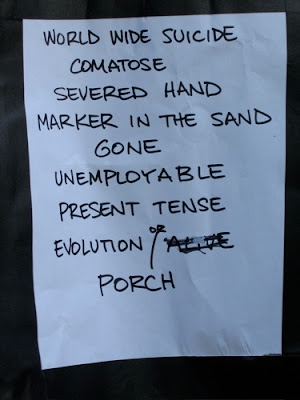 WORLD WIDE SUICIDE
COMATOSE
SEVERED HAND
MARKER IN THE SAND
GONE
UNEMPLOYABLE
PRESENT TENSE
EVOLUTION / OR ALIVE
PORCH